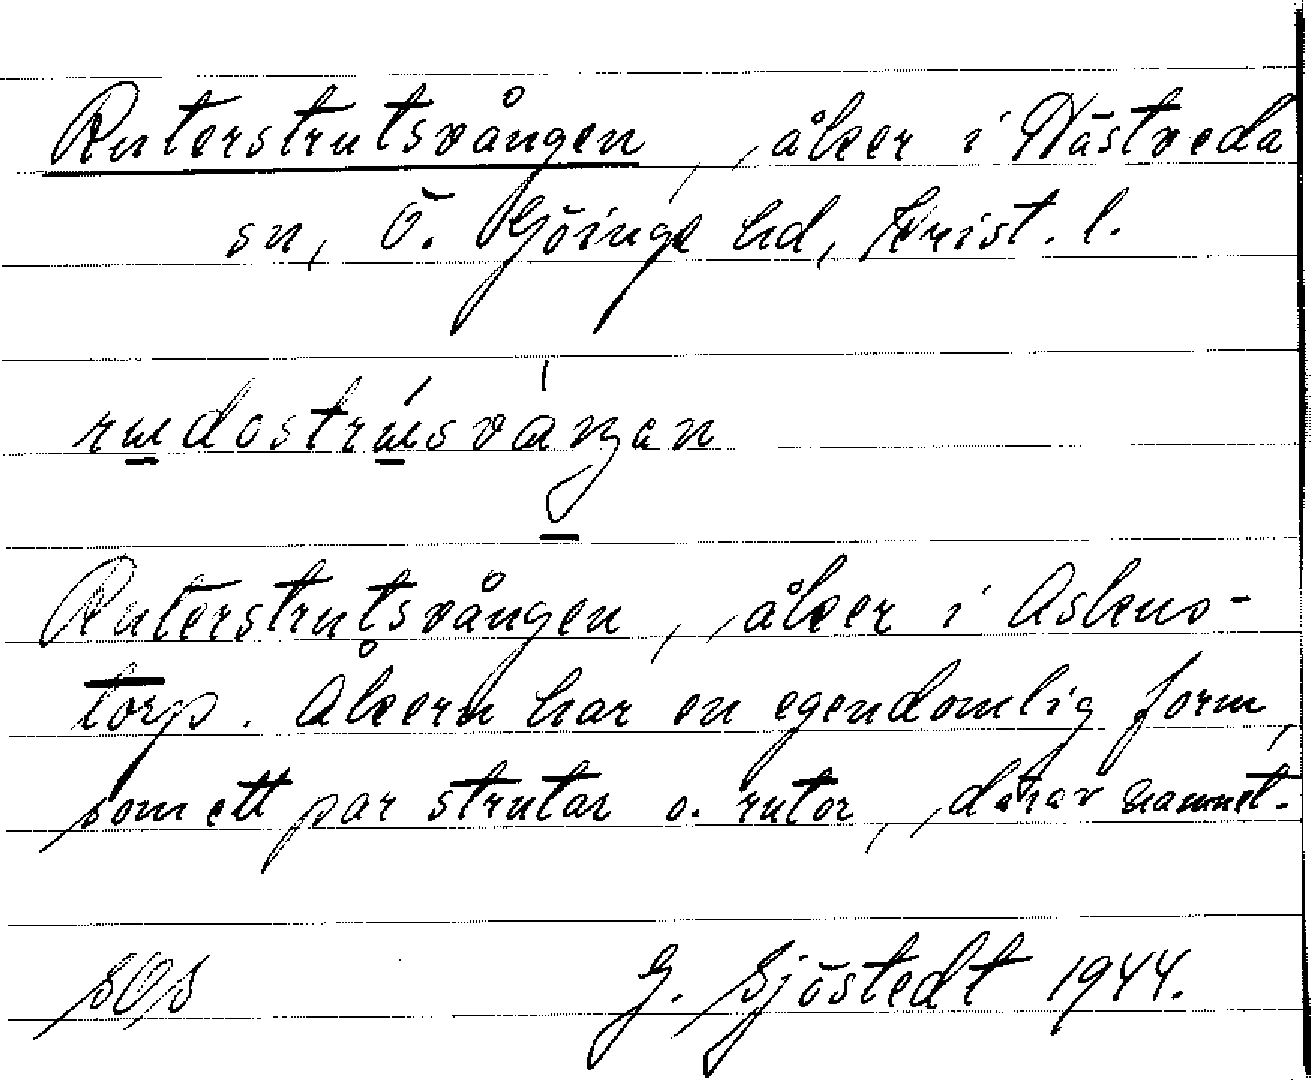 Ruterstrutsvången, åker i Hästveda
sn, Ö. Göinge hd, Krist. l.
Ruterstrutsvången, åker i Askus-
torp. Åkern har en egendomlig form,
som ett par strutar o. rutor, därav namnet.
SOS G. Sjöstedt 1944.